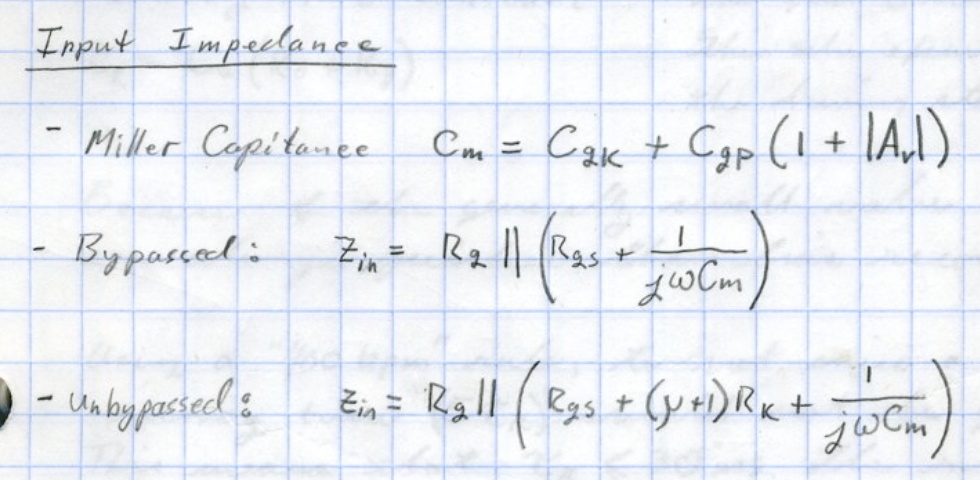 Input Impedance
- Miller Capitance Cm = Cgk + Cgp (1 + |Av|)
- Bypassed: Zin = Rg || (Rgs + 1/jωCm)
- Unbypassed: Zin = Rg || (Rgs + (μ+1)Rk + 1/jωCm)